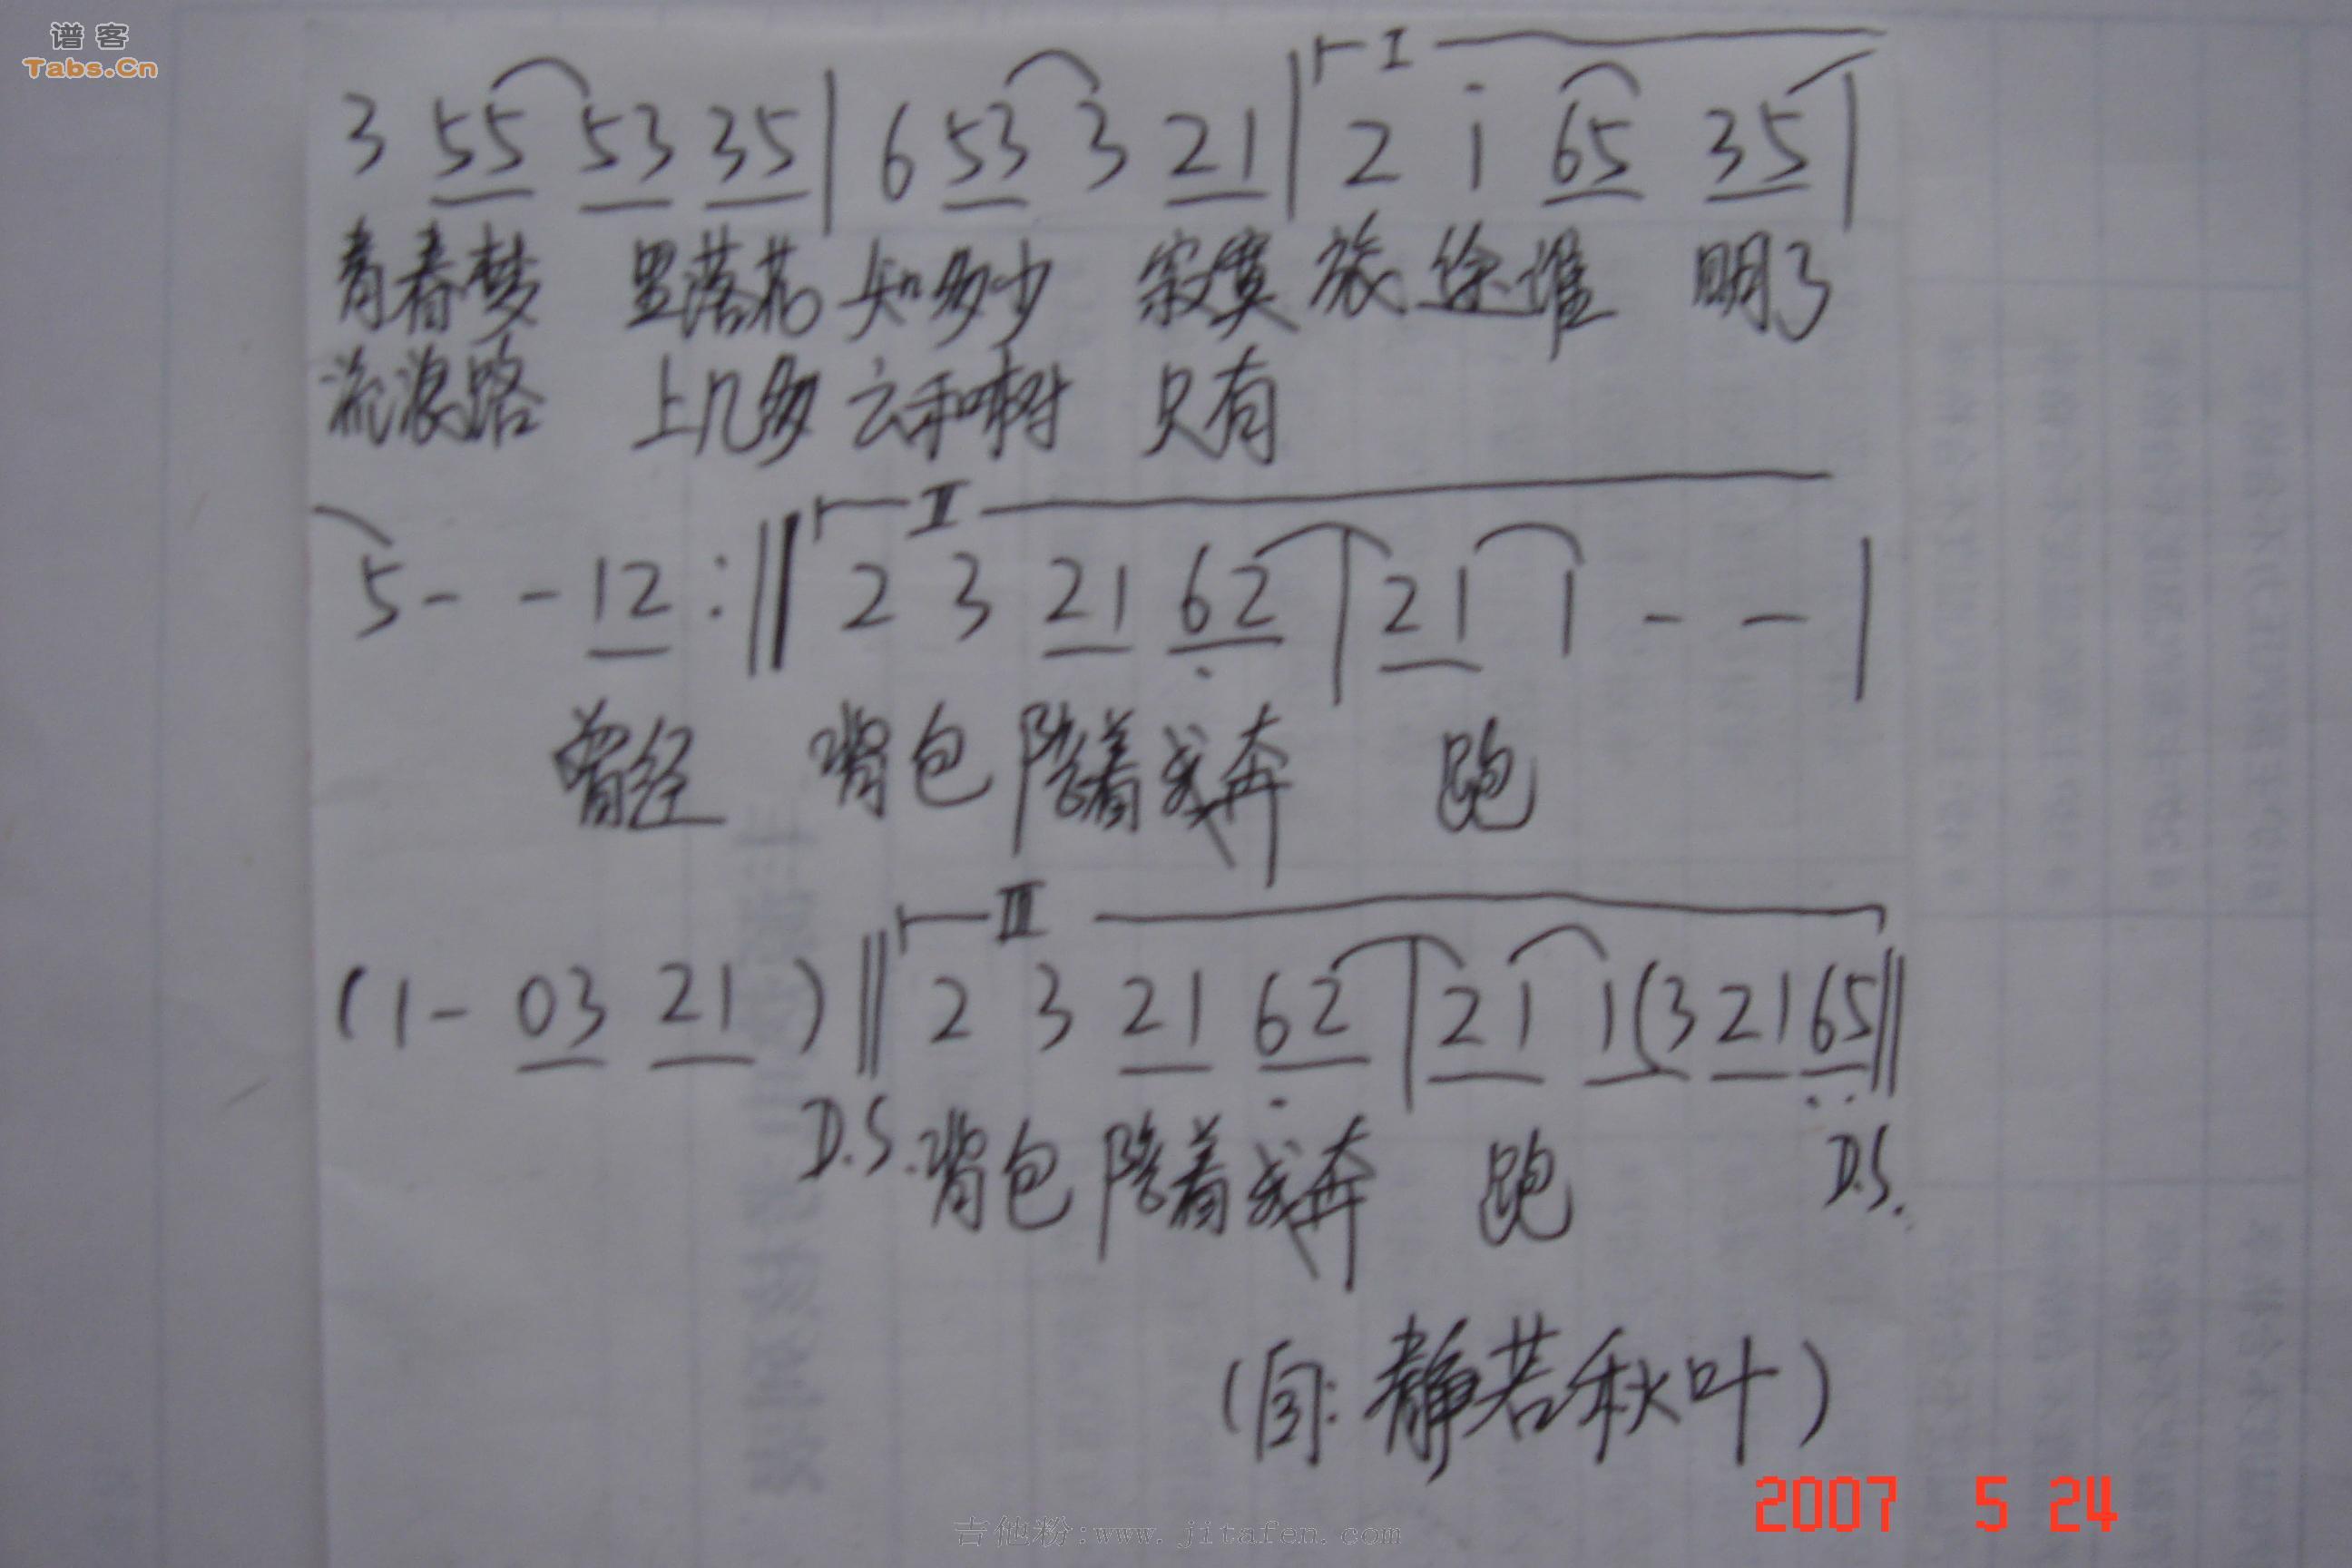 谱客
Tabs.Cn
I
3 55 53 35 | 6 53 3 21 | 2 i 65 35 |
青春梦 里落花 知多少 寂寞 旅途谁 明了
流浪路 上几多 云和树 只有
II
5 - - 12 :‖ 2 3 21 62 | 21 1 - - |
曾经 背包 陪着我奔 跑
III
(1 - 03 21) ‖ 2 3 21 62 | 21 1(3 21 65 ‖
D.S. 背包 陪着我奔 跑 D.S.
(自: 静若秋叶)
2007 5 24
吉他粉:www.jitafen.com